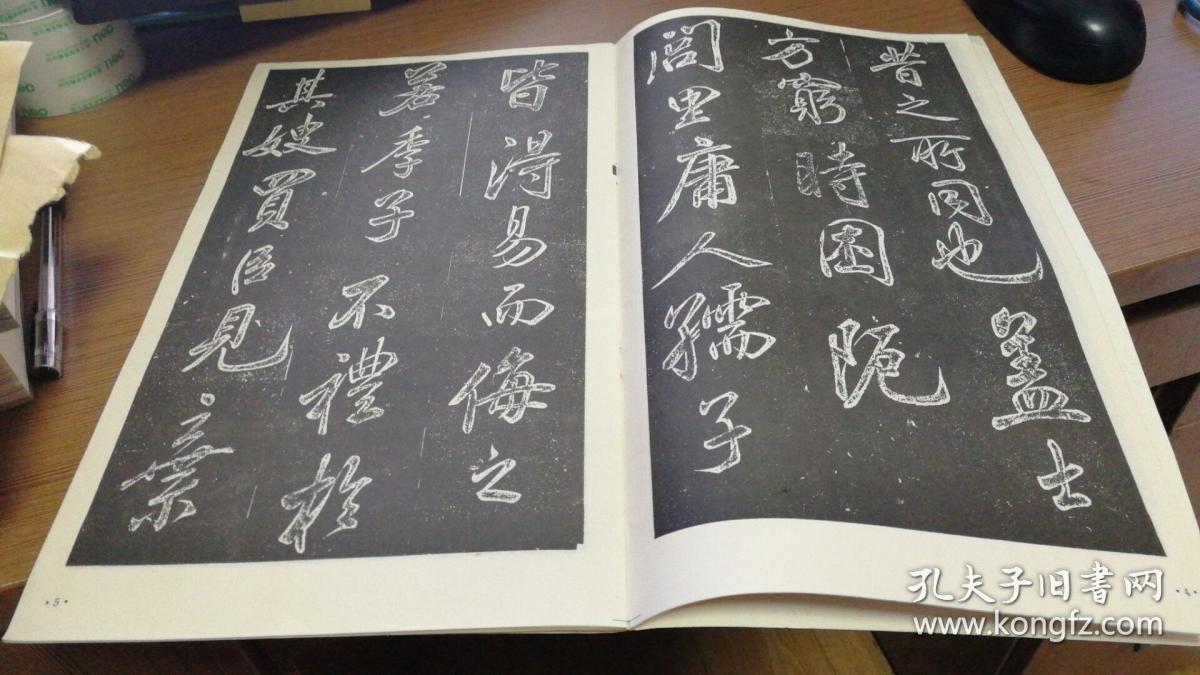 昔之所同也盖士
方窮時困阨
閭里庸人孺子
皆得易而侮之
若季子不禮於
其嫂買臣見棄
·4·
·5·
孔夫子旧书网
www.kongfz.com